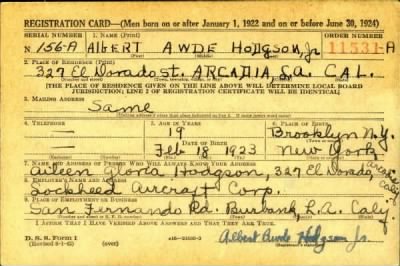 REGISTRATION CARD—(Men born on or after January 1, 1922 and on or before June 30, 1924)
SERIAL NUMBER 1. NAME (Print) ORDER NUMBER
N 156-A ALBERT AWDE HODGSON, Jr. 11531-A
(First) (Middle) (Last)
2. PLACE OF RESIDENCE (Print)
327 El Dorado St. ARCADIA L.A. CAL.
[THE PLACE OF RESIDENCE GIVEN ON THE LINE ABOVE WILL DETERMINE LOCAL BOARD
JURISDICTION; LINE 2 OF REGISTRATION CERTIFICATE WILL BE IDENTICAL]
3. MAILING ADDRESS
Same
4. TELEPHONE 5. AGE IN YEARS 6. PLACE OF BIRTH
— 19 Brooklyn N.Y.
DATE OF BIRTH
Feb 18 1923 New York
7. NAME AND ADDRESS OF PERSON WHO WILL ALWAYS KNOW YOUR ADDRESS
Aileen Gloria Hodgson, 327 El Dorado, Arcadia Calif
8. EMPLOYER'S NAME AND ADDRESS
Lockheed Aircraft Corp.
9. PLACE OF EMPLOYMENT OR BUSINESS
San Fernando Rd. Burbank L.A. Calif
I AFFIRM THAT I HAVE VERIFIED ABOVE ANSWERS AND THAT THEY ARE TRUE.
D. S. S. Form 1
Albert Awde Hodgson Jr.